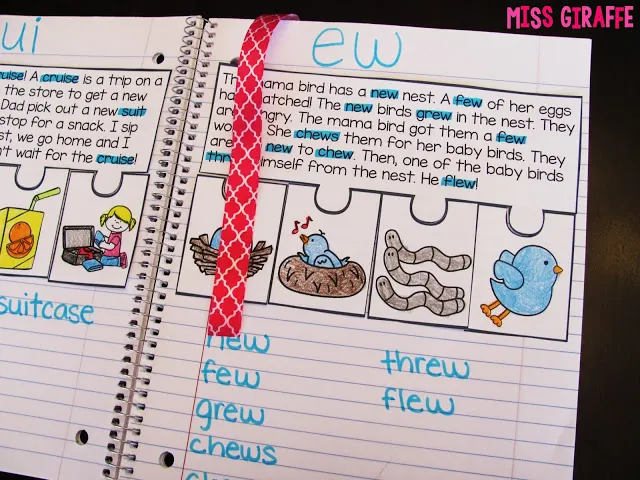 MISS GIRAFFE
ui
A cruise is a trip on a
the store to get a new
Dad pick out a new suit
stop for a snack. I sip
we go home and I
wait for the cruise!
suitcase
ew
mama bird has a new nest. A few of her eggs
hatched! The new birds grew in the nest. They
are hungry. The mama bird got them a few
She chews them for her baby birds. They
are new to chew. Then, one of the baby birds
himself from the nest. He flew!
new
few
grew
chews
threw
flew